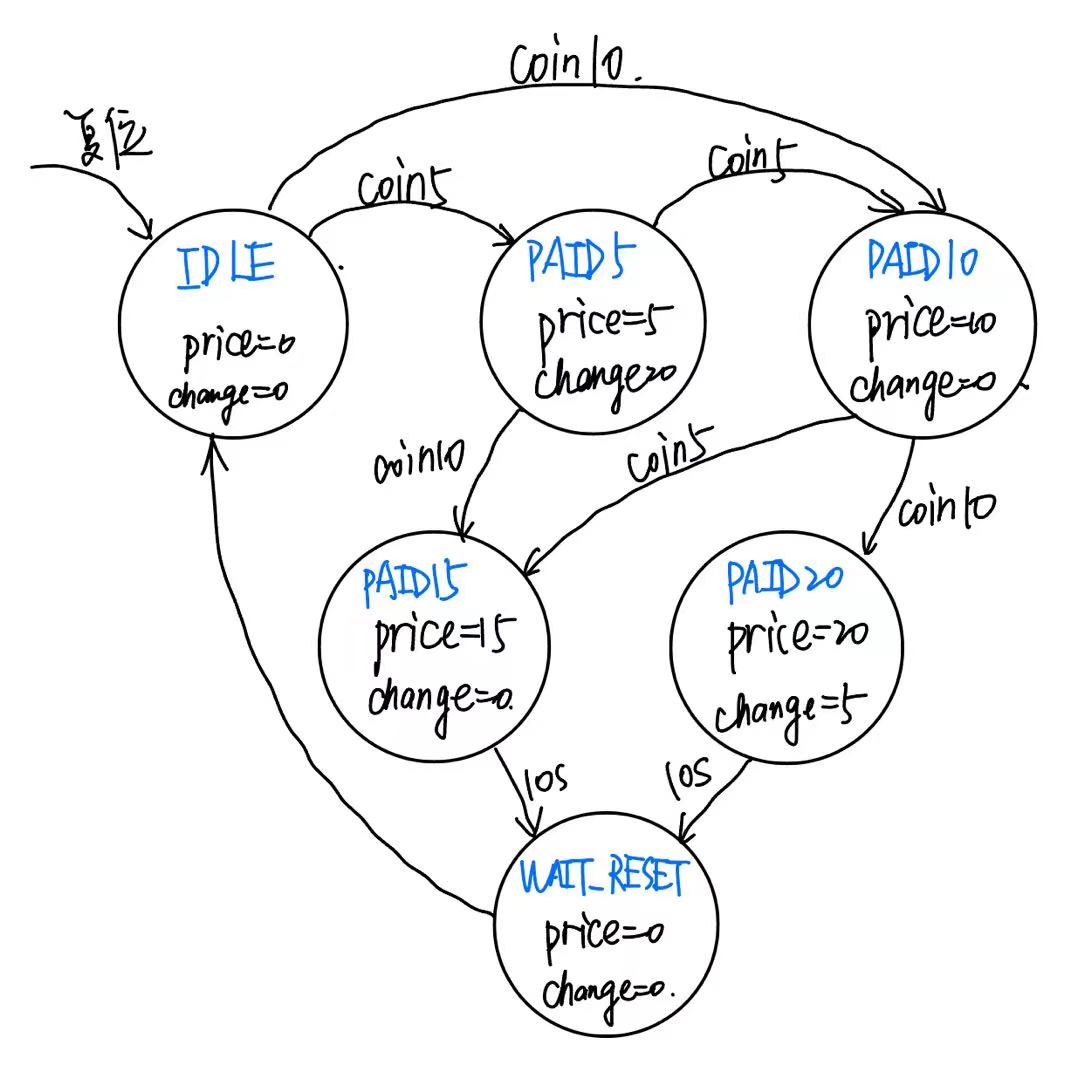 coin10.
复位
coin5
coin5
IDLE
price=0
change=0
PAID5
price=5
change=0
PAID10
price=10
change=0
coin10
coin5
coin10
PAID15
price=15
change=0.
PAID20
price=20
change=5
10s
10s
WAIT_RESET
price=0
change=0.